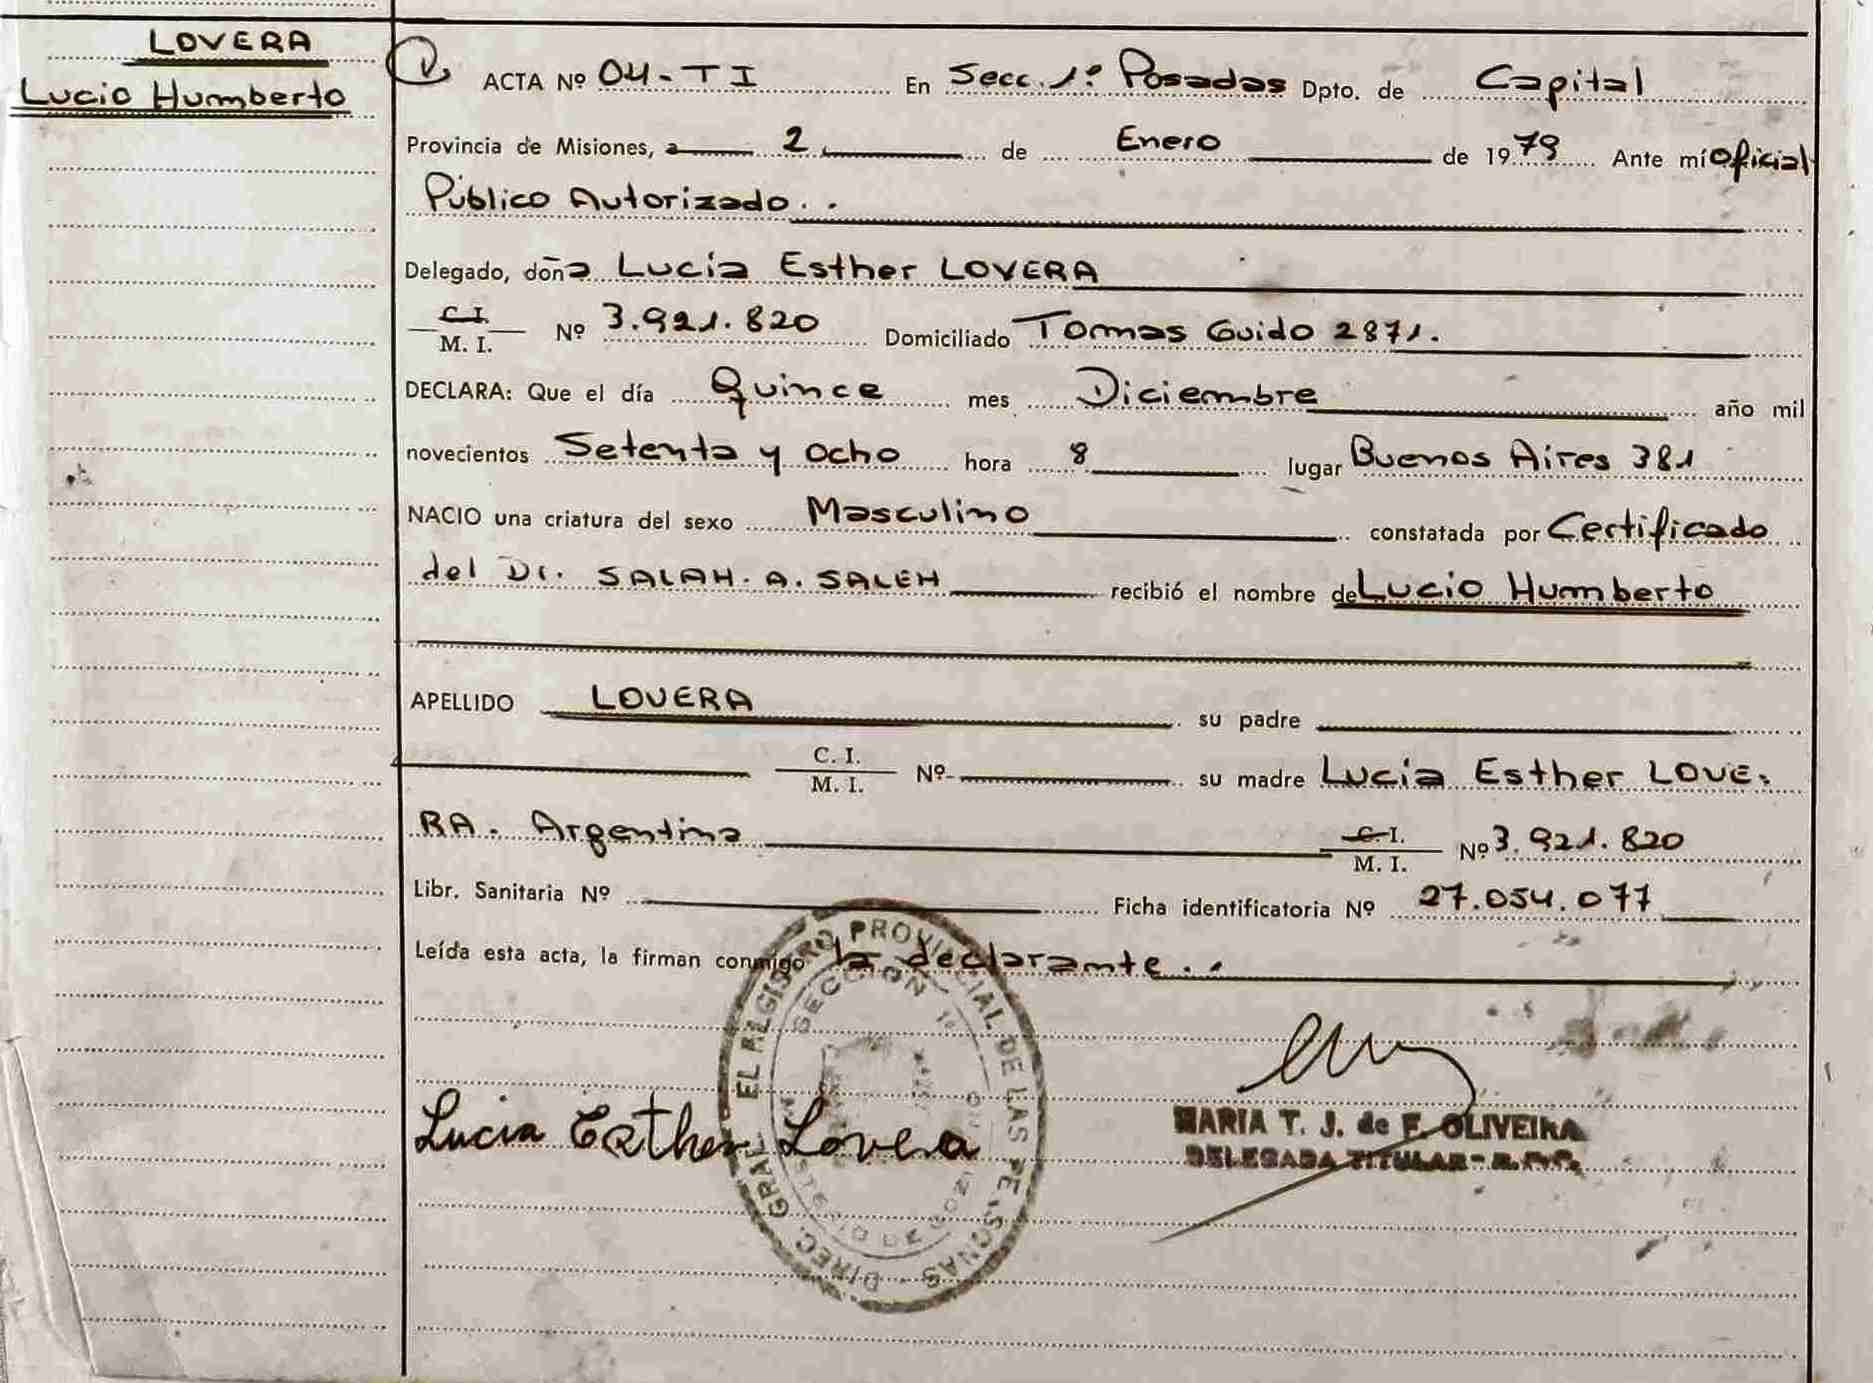 LOVERA
Lucio Humberto
ACTA Nº 04-TI En Secc. 1º Posadas Dpto. de Capital
Provincia de Misiones, a 2 de Enero de 1979 Ante mí Oficial
Público Autorizado..
Delegado, doña Lucía Esther LOVERA
C.I.
M. I. Nº 3.921.820 Domiciliado Tomas Guido 2871.
DECLARA: Que el día Quince mes Diciembre año mil
novecientos Setenta y ocho hora 8 lugar Buenos Aires 381
NACIO una criatura del sexo Masculino constatada por Certificado
del Dr. SALAH. A. SALEH recibió el nombre de Lucio Humberto
APELLIDO LOVERA su padre
C. I.
M. I. Nº su madre Lucía Esther LOVE-
RA. Argentina C.I.
M. I. Nº 3.921.820
Libr. Sanitaria Nº Ficha identificatoria Nº 27.054.077
Leída esta acta, la firman conmigo la declarante..
DIREC. GRAL. EL REGISTRO PROVINCIAL DE LAS PERSONAS
SECCION 1º
Lucia Esther Lovera
MARIA T. J. de F. OLIVEIRA
DELEGADA TITULAR - R.P.P.